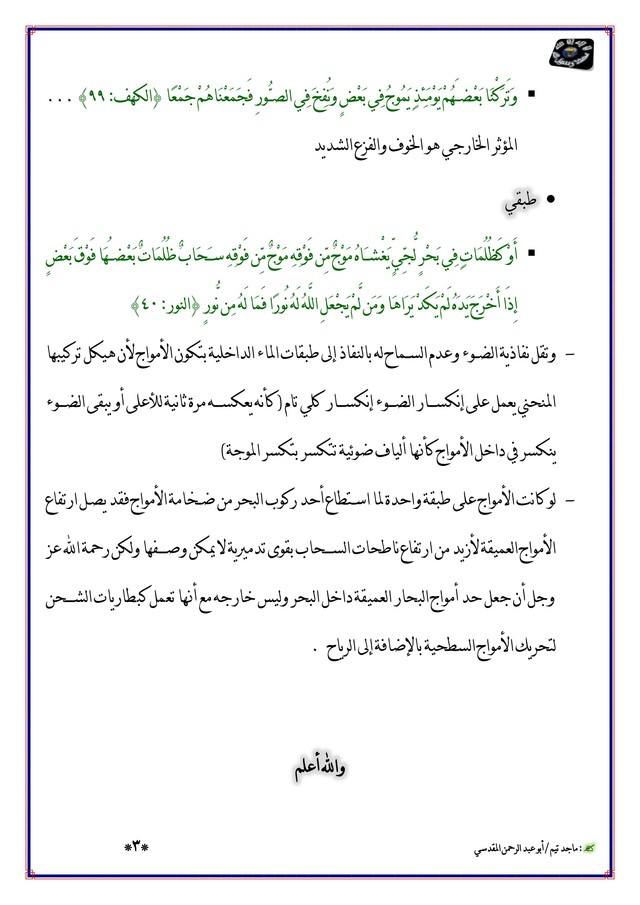 ▪ وَتَرَكْنَا بَعْضَهُمْ يَوْمَئِذٍ يَمُوجُ فِي بَعْضٍ وَنُفِخَ فِي الصُّورِ فَجَمَعْنَاهُمْ جَمْعًا ﴿الكهف: ٩٩﴾ ...
المؤثر الخارجي هو الخوف والفزع الشديد
• طبقي
▪ أَوْ كَظُلُمَاتٍ فِي بَحْرٍ لُّجِّيٍّ يَغْشَاهُ مَوْجٌ مِّن فَوْقِهِ مَوْجٌ مِّن فَوْقِهِ سَحَابٌ ظُلُمَاتٌ بَعْضُهَا فَوْقَ بَعْضٍ
إِذَا أَخْرَجَ يَدَهُ لَمْ يَكَدْ يَرَاهَا وَمَن لَّمْ يَجْعَلِ اللَّهُ لَهُ نُورًا فَمَا لَهُ مِن نُّورٍ ﴿النور: ٤٠﴾
– وتقل نفاذية الضوء وعدم السماح له بالنفاذ إلى طبقات الماء الداخلية بتكون الأمواج لأن هيكل تركيبها
المنحني يعمل على إنكسار الضوء إنكسار كلي تام (كأنه يعكسه مرة ثانية للأعلى أو يبقى الضوء
ينكسر في داخل الأمواج كأنها ألياف ضوئية تتكسر بتكسر الموجة)
– لو كانت الأمواج على طبقة واحدة لما استطاع أحد ركوب البحر من ضخامة الأمواج فقد يصل ارتفاع
الأمواج العميقة لأزيد من ارتفاع ناطحات السحاب بقوى تدميرية لا يمكن وصفها ولكن رحمة الله عز
وجل أن جعل حد أمواج البحار العميقة داخل البحر وليس خارجه مع أنها تعمل كبطاريات الشحن
لتحريك الأمواج السطحية بالإضافة إلى الرياح .
والله أعلم
: ماجد تيم / أبو عبد الرحمن المقدسي
*٣*